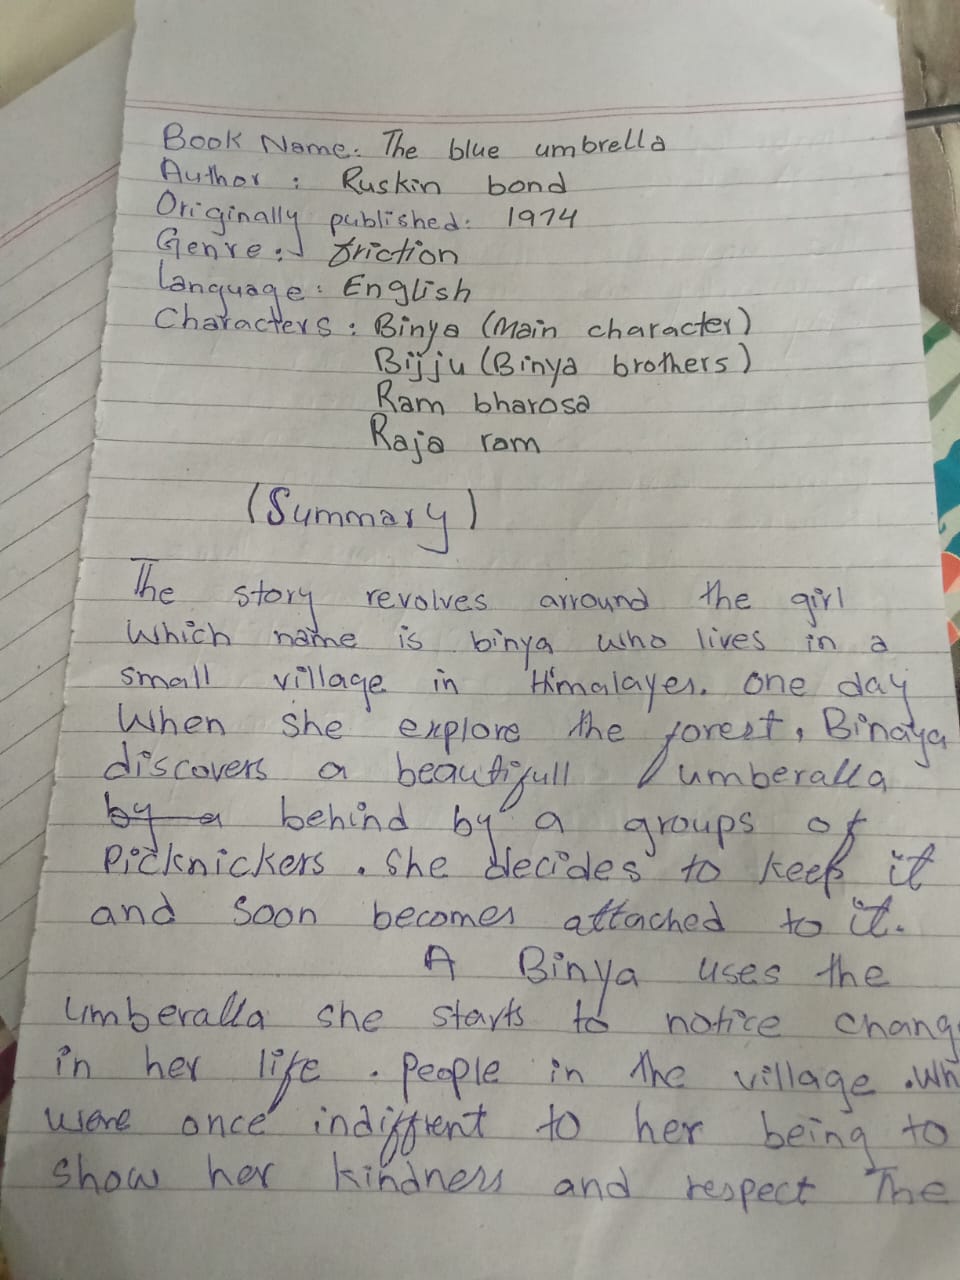 Book Name: The blue umbrella
Author : Ruskin bond
Originally published: 1974
Genre: friction
Language: English
Characters : Binya (Main character)
Bijju (Binya brothers)
Ram bharosa
Raja ram
(Summary)
The story revolves arround the girl
Which name is binya who lives in a
small village in Himalayes. One day
When she explore the forest, Binaya
discovers a beautifull umberalla
by a behind by a groups of
Picknickers. She decides to keep it
and soon becomes attached to it.
A Binya uses the
Umberalla she starts to notice chang
in her life. People in the village. Wh
were once indiffrent to her being to
show her kindness and respect The